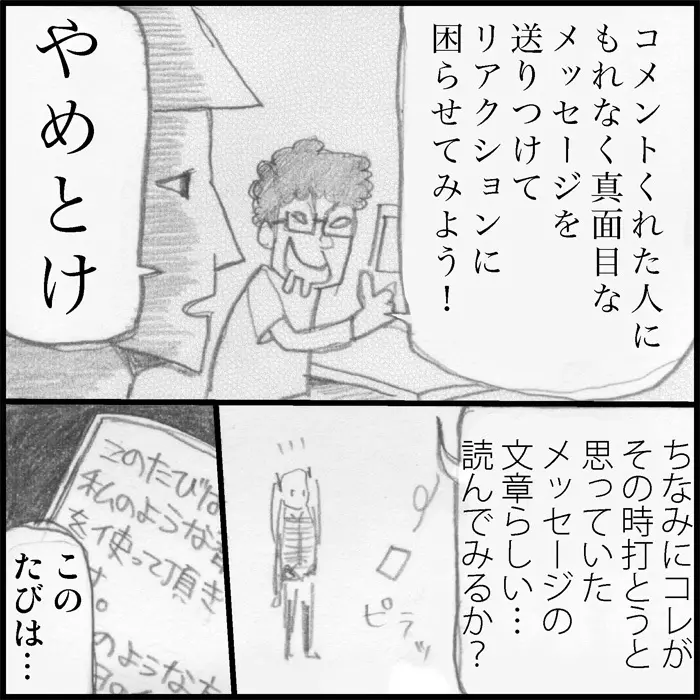 コメントくれた人に
もれなく真面目な
メッセージを
送りつけて
リアクションに
困らせてみよう！
やめとけ
ちなみにコレが
その時打とうと
思っていた
メッセージの
文章らしい…
読んでみるか？
ピラッ
このたびは
私のような
を使って頂き
のような
この
たびは…